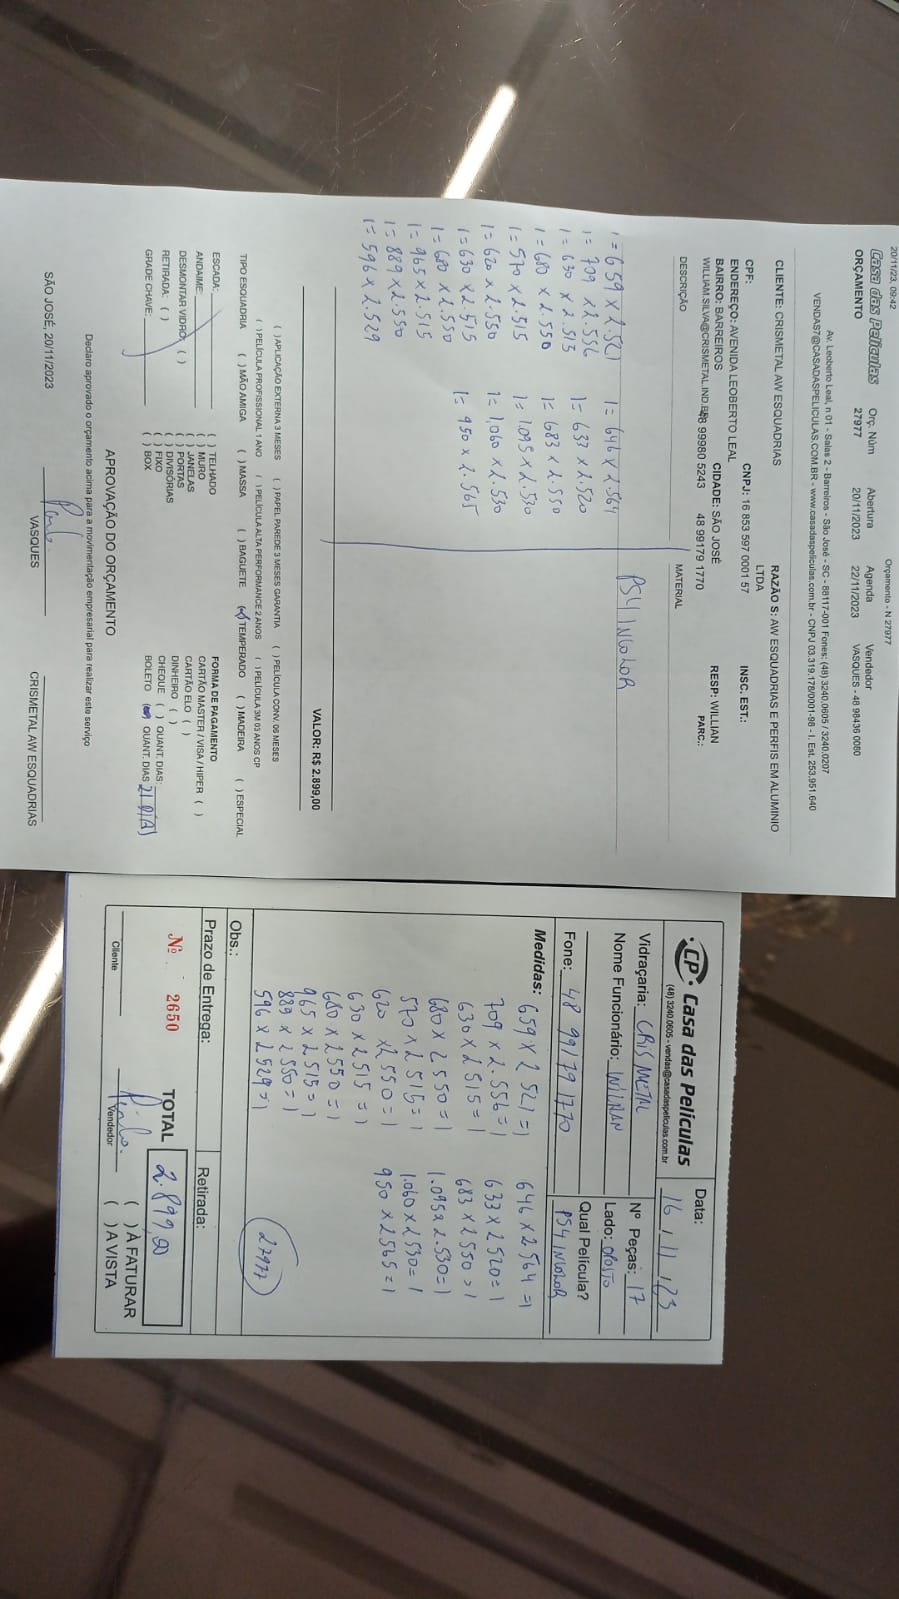 20/11/23, 09:42
Orçamento - N 27977
Casa das Películas
ORÇAMENTO
Orç. Núm
27977
Abertura
20/11/2023
Agenda
22/11/2023
Vendedor
VASQUES - 48 98436 0080
Av. Leoberto Leal, n 01 - Salas 2 - Barreiros - São José - SC - 88117-001 Fones: (48) 3240.0605 / 3240.0207
VENDAS7@CASADASPELICULAS.COM.BR - www.casadaspeliculas.com.br - CNPJ 03.319.178/0001-98 - I. Est. 253.951.640
CLIENTE: CRISMETAL AW ESQUADRIAS
RAZÃO S: AW ESQUADRIAS E PERFIS EM ALUMINIO LTDA
CPF:
CNPJ: 16 853 597 0001 57
INSC. EST.:
ENDEREÇO: AVENIDA LEOBERTO LEAL
BAIRRO: BARREIROS
CIDADE: SÃO JOSÉ
RESP: WILLIAN
WILLIAM.SILVA@CRISMETAL.IND.BR
48 99980 5243
48 99179 1770
PARC.:
DESCRIÇÃO
MATERIAL
1= 659 x 2.521 1= 646 x 2.564
PS4 INCOLOR
1= 709 x 2.556 1= 633 x 2.520
1= 630 x 2.513 1= 683 x 2.550
1= 680 x 2.550 1= 1.095 x 2.530
1= 570 x 2.515 1= 1,060 x 2.530
1= 620 x 2.550 1= 950 x 2.565
1= 630 x 2.515
1= 680 x 2.550
1= 965 x 2.515
1= 889 x 2.550
1= 596 x 2.529
VALOR: R$ 2.899,00
( ) APLICAÇÃO EXTERNA 3 MESES ( ) PAPEL PAREDE 3 MESES GARANTIA ( ) PELÍCULA CONV. 06 MESES
( ) PELÍCULA PROFISSIONAL 1 ANO ( ) PELÍCULA ALTA PERFORMANCE 2 ANOS ( ) PELÍCULA 3M 03 ANOS CP
TIPO ESQUADRIA ( ) MÃO AMIGA ( ) MASSA ( ) BAGUETE (x) TEMPERADO ( ) MADEIRA ( ) ESPECIAL
ESCADA: ( ) TELHADO FORMA DE PAGAMENTO
ANDAIME: ( ) MURO CARTÃO MASTER / VISA / HIPER ( )
( ) JANELAS CARTÃO ELO ( )
DESMONTAR VIDRO: ( ) ( ) PORTAS DINHEIRO ( )
RETIRADA: ( ) ( ) DIVISÓRIAS CHEQUE ( ) QUANT. DIAS:
( ) FIXO
GRADE CHAVE: ( ) BOX BOLETO (x) QUANT. DIAS 21 D(A)
APROVAÇÃO DO ORÇAMENTO
Declaro aprovado o orçamento acima para a movimentação empresarial para realizar este serviço
SÃO JOSÉ, 20/11/2023
VASQUES
CRISMETAL AW ESQUADRIAS
CP Casa das Películas
(48) 3240.0605 - vendas@casadaspeliculas.com.br
Data:
16 / 11 / 23
Vidraçaria: CRISMETAL
Nº Peças: 17
Nome Funcionário: WILLIAN
Lado: OPOSTO
Fone: 48 99179 1770
Qual Película?
PS4 INCOLOR
Medidas: 659 x 2521 =1 646 x 2564 =1
709 x 2.556=1 633 x 2520=1
630 x 2.515 = 1 683 x 2550 = 1
680 x 2550=1 1.095 x 2.530=1
570 x 2515=1 1.060 x 2530= 1
620 x 2550 = 1 950 x 2565 = 1
630 x 2.515 = 1
680 x 2550 = 1
965 x 2515 = 1
889 x 2550= 1
596 x 2529= 1
27977
Obs.:
Prazo de Entrega:
Retirada:
Nº 2650
TOTAL 2.899,00
( ) À FATURAR
( ) A VISTA
Cliente
Vendedor